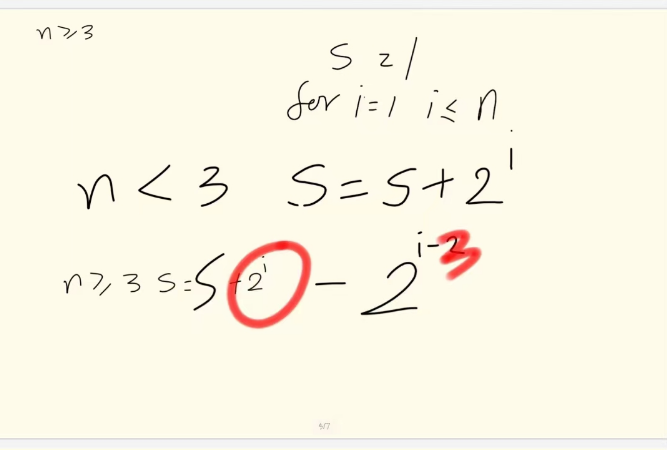 n ≥ 3
S = 1
for i = 1 i ≤ n
n < 3 S = S + 2^i
n ≥ 3 S = S + 2^i - 2^{i-3}
6/7